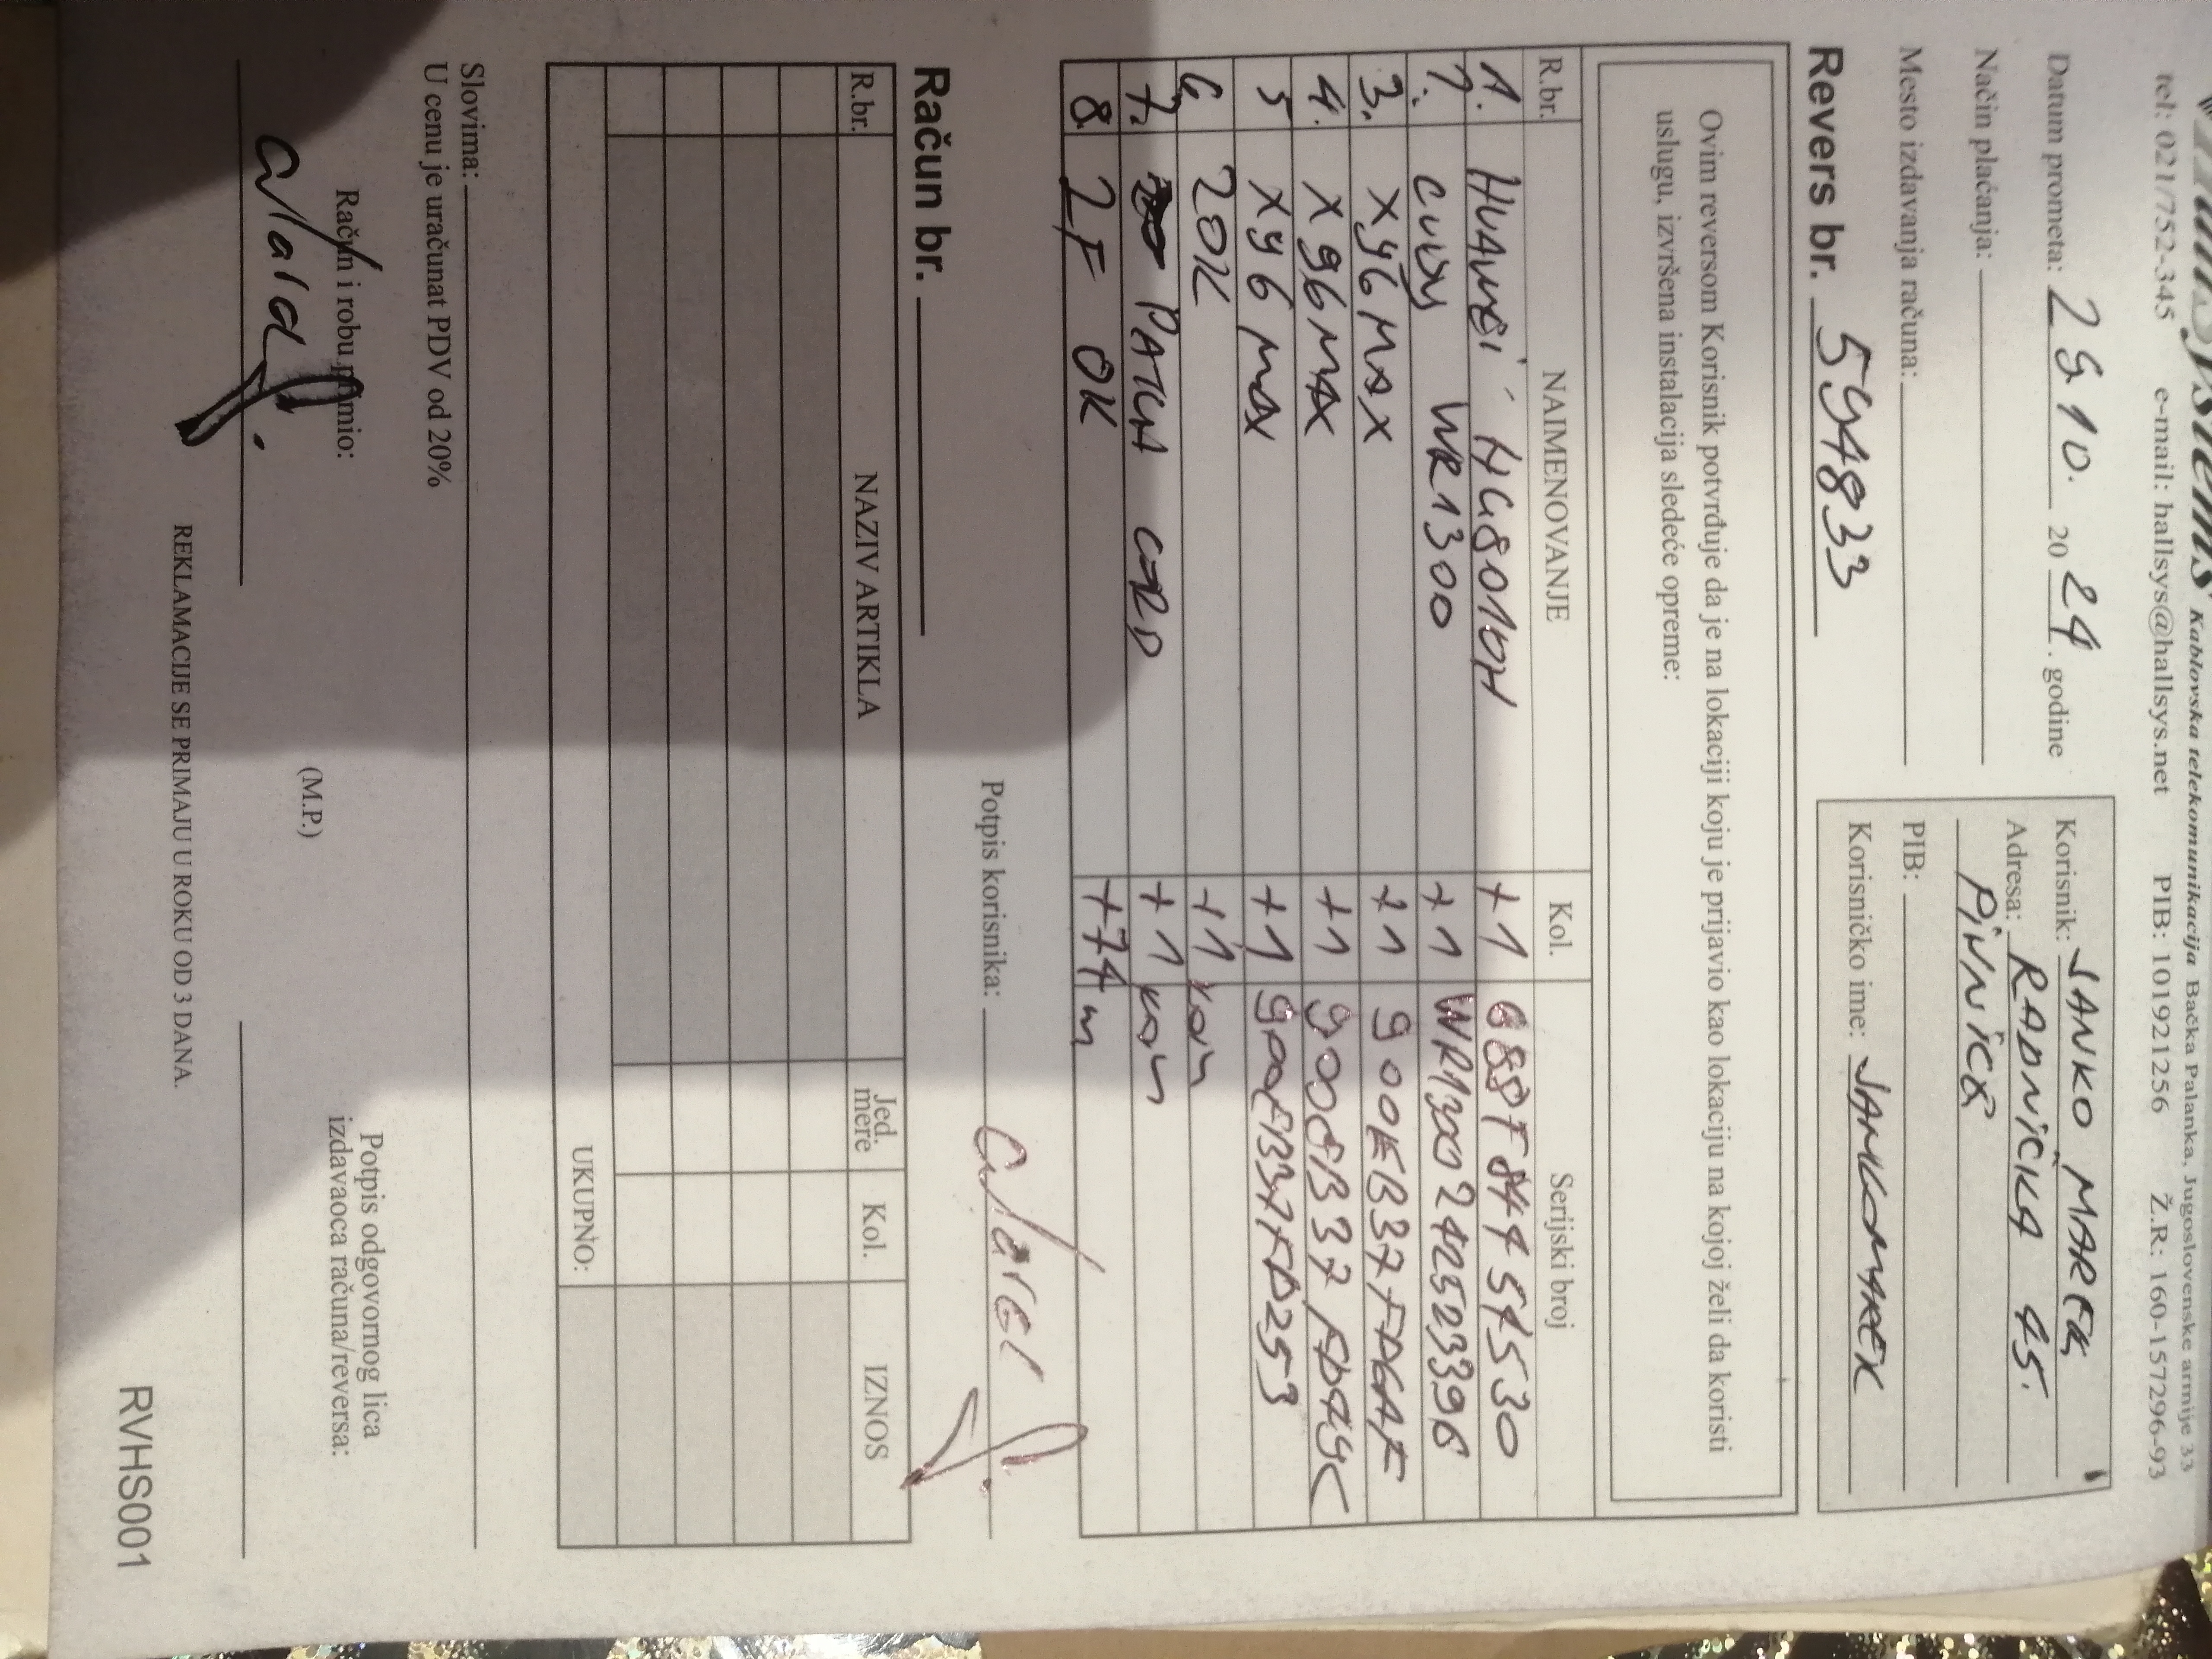 Kablovska telekomunikacija Bačka Palanka, Jugoslovenske armije 33
tel: 021/752-345 e-mail: hallsys@hallsys.net PIB: 101921256 Ž.R: 160-157296-93
Datum prometa: 29.10. 2024. godine
Način plaćanja:
Mesto izdavanja računa:
Korisnik: JANKO MAREK
Adresa: RADNIČKA 45.
PIVNICE
PIB:
Korisničko ime: JANKOMAREK
Revers br. 594833
Ovim reversom Korisnik potvrđuje da je na lokaciji koju je prijavio kao lokaciju na kojoj želi da koristi
uslugu, izvršena instalacija sledeće opreme:
R.br. NAIMENOVANJE Kol. Serijski broj
1. HUAWEI HG8010H +1
CUDY WR1300 +1
3. X96 MAX +1
4. X96 MAX +1
5 X96 MAX +1
6 ZOK +1 kom
7. PATCH CORD +1 kom
8. 2F OK +74 m
Potpis korisnika: Marek J.
Račun br.
R.br. NAZIV ARTIKLA Jed. mere Kol. IZNOS
UKUPNO:
Slovima:
U cenu je uračunat PDV od 20%
Račun i robu primio:
(M.P.)
Potpis odgovornog lica
izdavaoca računa/reversa:
REKLAMACIJE SE PRIMAJU U ROKU OD 3 DANA.
RVHS001